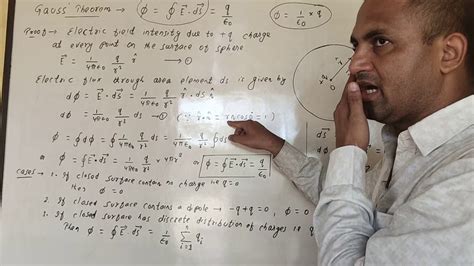 Gauss Theorem :- ϕ = ∮ E⃗ · ds⃗ = q/ε₀ ϕ = 1/ε₀ × q
Proof :- Electric field intensity due to +q charge
at every point on the surface of sphere
E⃗ = 1/4πε₀ q/r² r̂ → ①
Electric flux through area element ds is given by
dϕ = E⃗ · ds⃗ = 1/4πε₀ q/r² r̂ · ds n̂
dϕ = 1/4πε₀ q/r² ds
ϕ = ∮dϕ = ∮ 1/4πε₀ q/r² ds = 1/4πε₀ q/r² ∮ds
or ϕ = ∮ E⃗ · ds⃗ = 1/4πε₀ q/r² × 4πr² or ϕ = ∮ E⃗ · ds⃗ = q/ε₀
cases → 1. If closed surface contain no charge i.e q = 0
then ϕ = 0
2. If closed surface contains a dipole → -q+q = 0, ϕ = 0
3. If closed surface has discrete distribution of charges i.e q
Then ϕ = ∮ E⃗ · ds⃗ = 1/ε₀ Σ qᵢ